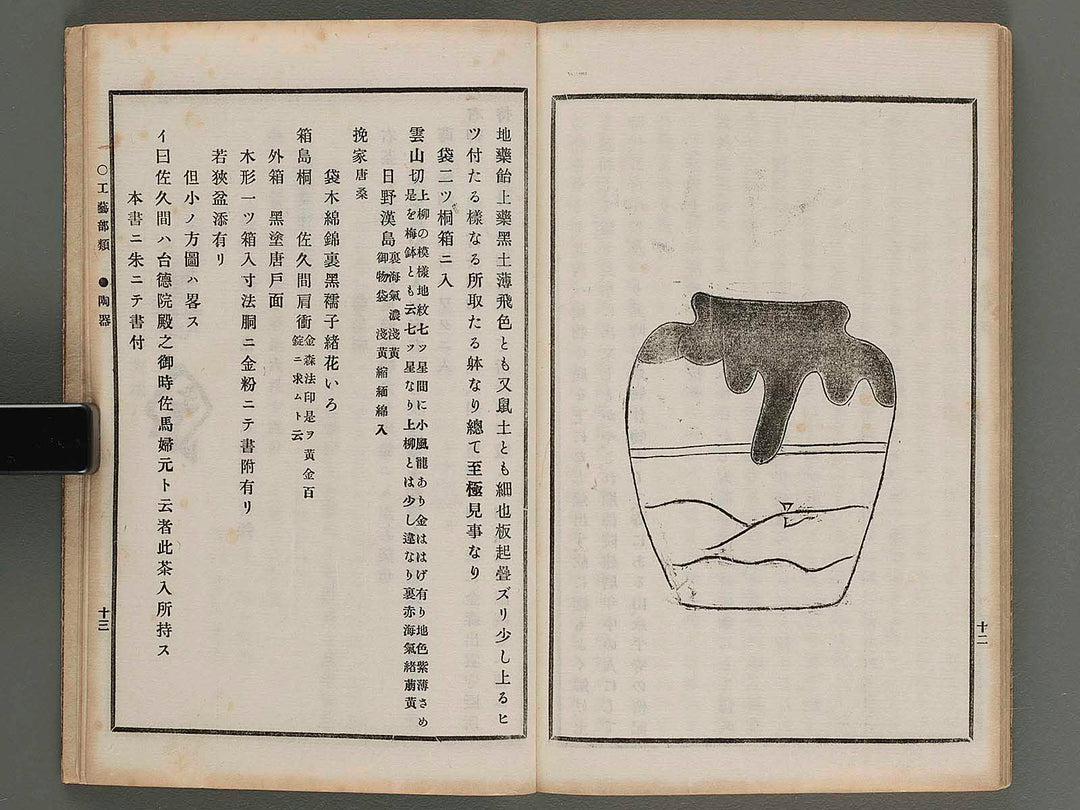 十二
地藥飴上藥黑土薄飛色とも又鼠土とも細也板起疊ズリ少し上るヒ
ツ付たる樣なる所取たる躰なり總て至極見事なり
袋二ツ桐箱ニ入
雲山切上柳の模樣地紋七ツ星間に小風龍あり金ははげ有り地色紫薄さめ
是を梅鉢とも云七ツ星なり上柳とは少し違なり裏赤海氣緖萠黃
日野漢島裏海氣濃淺黃
御物袋淺黃縮緬綿入
挽家唐桑
袋木綿錦裏黑襦子緖花いろ
箱島桐佐久間肩衝金森法印是ヲ黃金百
錠ニ求ムト云
外箱黑塗唐戶面
木形一ツ箱入寸法胴ニ金粉ニテ書附有リ
若狹盆添有リ
但小ノ方圖ハ畧ス
イ曰佐久間ハ台德院殿之御時佐馬婦元ト云者此茶入所持ス
本書ニ朱ニテ書付
○工藝部類 ●陶器
十三